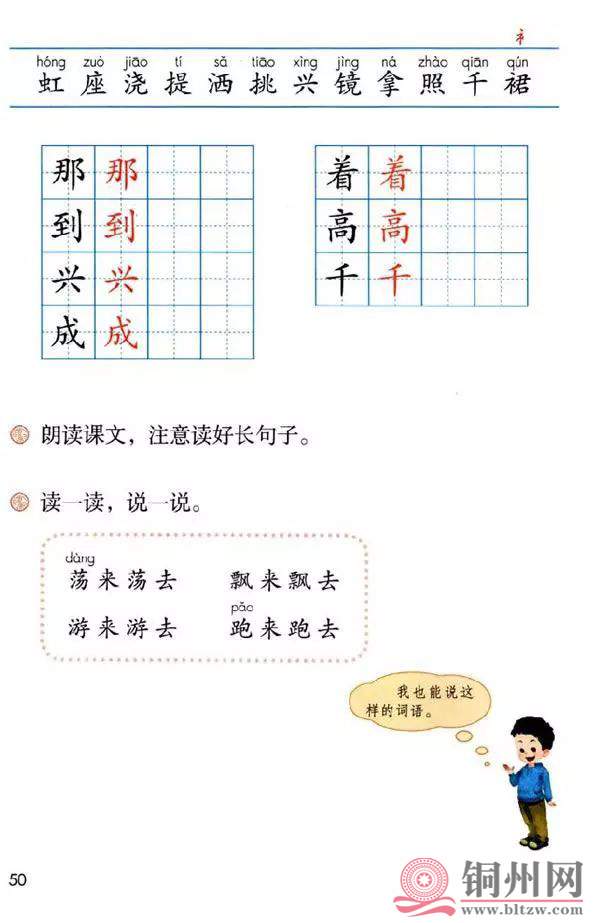 礻
hóng zuò jiāo tí sǎ tiāo xìng jìng ná zhào qiān qún
虹 座 浇 提 洒 挑 兴 镜 拿 照 千 裙
那 那 着 着
到 到 高 高
兴 兴 千 千
成 成
朗读课文，注意读好长句子。
读一读，说一说。
dàng
荡来荡去 飘来飘去
pǎo
游来游去 跑来跑去
我也能说这
样的词语。
50
铜州网
www.bltzw.com